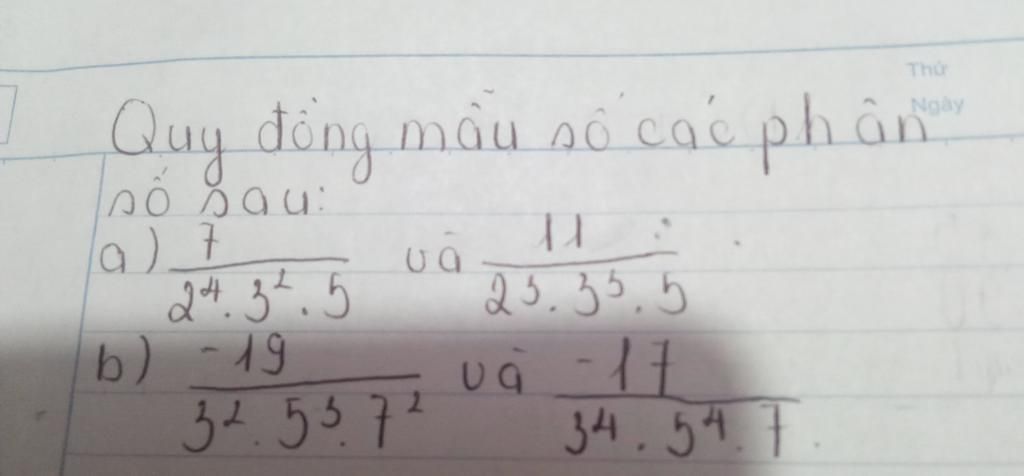 Thứ
Ngày
Quy đồng mẫu số các phân
số sau:
a) 7/(2⁴.3².5) và 11/(2³.3³.5)
b) -19/(3².5³.7²) và -17/(3⁴.5⁴.7)